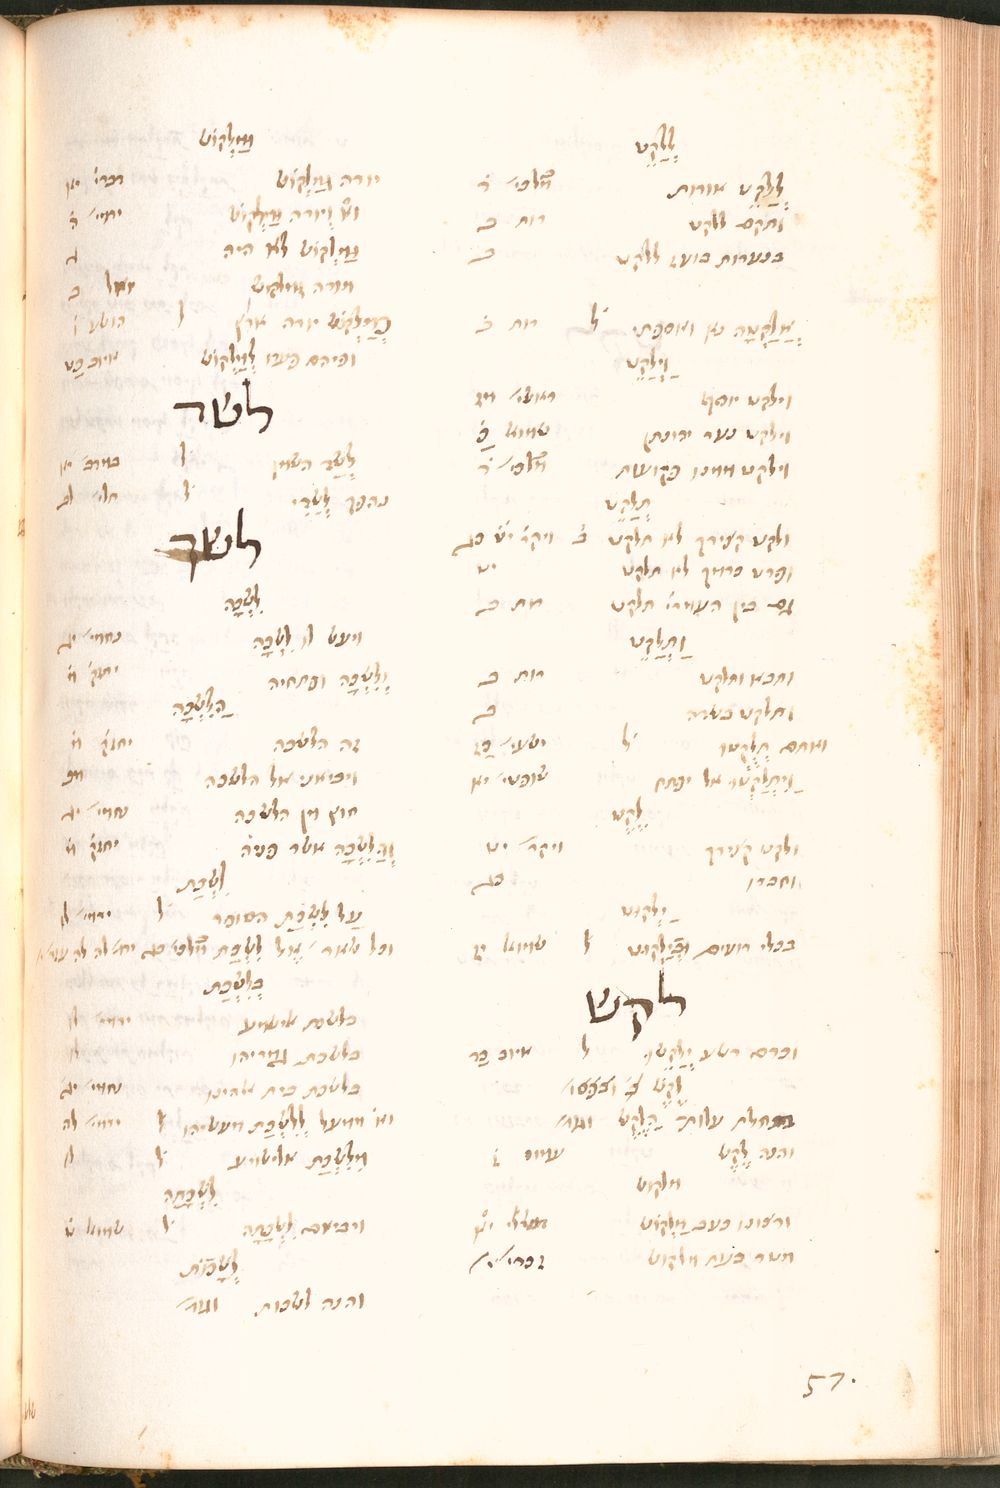 לְלַקֵּט
לְלַקֵּט אורות מלכי׳ ד׳
ותקם ללקט רות ב
בנערות בועז ללקט ב
אֲלַקֳטָה נא ואספתי ל׳ רות ב׳
וַיְלַקֵּט
וילקט יוסף בראשי׳ מז
וילקט נער יהונתן שמוא׳ כ׳
וילקט ממנו פקועות מלכי׳ ד׳
תְלַקֵּט
ולקט קצירך לא תלקט ב׳ ויקר׳ יט כג
ופרט כרמך לא תלקט יט
גם בין העמרי׳ תלקט רות ב
וַתְּלַקֵּט
ותבא ותלקט רות ב
ותלקט בשדה ב
ואתם תְּלֻקְּטוּ ל׳ ישעי׳ כז
וַיִּתְלַקְּטוּ אל יפתח שופטי׳ יא
לֶקֶט
ולקט קצירך ויקר׳ יט
וחברו כג
יַלְקוּט
בכלי רועים וּבַיַּלְקוּט ל׳ שמואל יז
לקש
וכרם רשע יְלַקֵּשׁוּ ל׳ איוב כד
לֶקֶשׁ
בתחלת עלות הַלֶּקֶשׁ וגו׳
והנה לֶקֶשׁ עמוס ז
מלקוש
ורצונו כעב מַלְקוֹשׁ משלי יו׳
מטר בעת מלקוש זכרי׳ י׳
וּמַלְקוֹשׁ
יורה וּמַלְקוֹשׁ דברי׳ יא
וְיורה וּמַלְקוֹשׁ ירמי׳ ה׳
וּמַלְקוֹשׁ לא היה ג
מורה ומלקוש יואל ב
כְּמַלְקוֹשׁ יורה ארץ ל׳ הושע ו׳
ופיהם פערו לְמַלְקוֹשׁ איוב כט
לשד
לְשַׁד השמן ל׳ במדב׳ יא
נהפך לְשַׁדִּי ל׳ תלי׳ לב
לשך
לִשְׁכָּה
ויעש לו לִשְׁכָּה נחמי׳ יג
וְלִשְׁכָּה ופתחיה יחזק׳ מ׳
הַלִּשְׁכָּה
זה הלשכה יחזק׳ מ׳
ויביאני אל הלשכה מב
חוץ מן הלשכה נחמי׳ יג
וְהַלִּשְׁכָּה אשר פניה יחזק׳ מ׳
לִשְׁכַּת
על לִשְׁכַּת הסופר ל׳ ירמי׳ לו
וכל שאר׳ אל לִשְׁכַּת מלכי׳ כג
בְּלִשְׁכַּת
בלשכת אלישמע ירמי׳ לו
בלשכת גמריהו לו
בלשכת בית אלהינו נחמי׳ יג
ממעל לְלִשְׁכַּת מעשיהו ל׳ ירמי׳ לה
מִלִּשְׁכַּת אלישמע ל׳ לו
לִשְׁכָּתָה
ויביאם לִשְׁכָּתָה ל׳ שמוא׳ ט׳
לְשָׁכוֹת
והנה לשכות וגו׳
57.